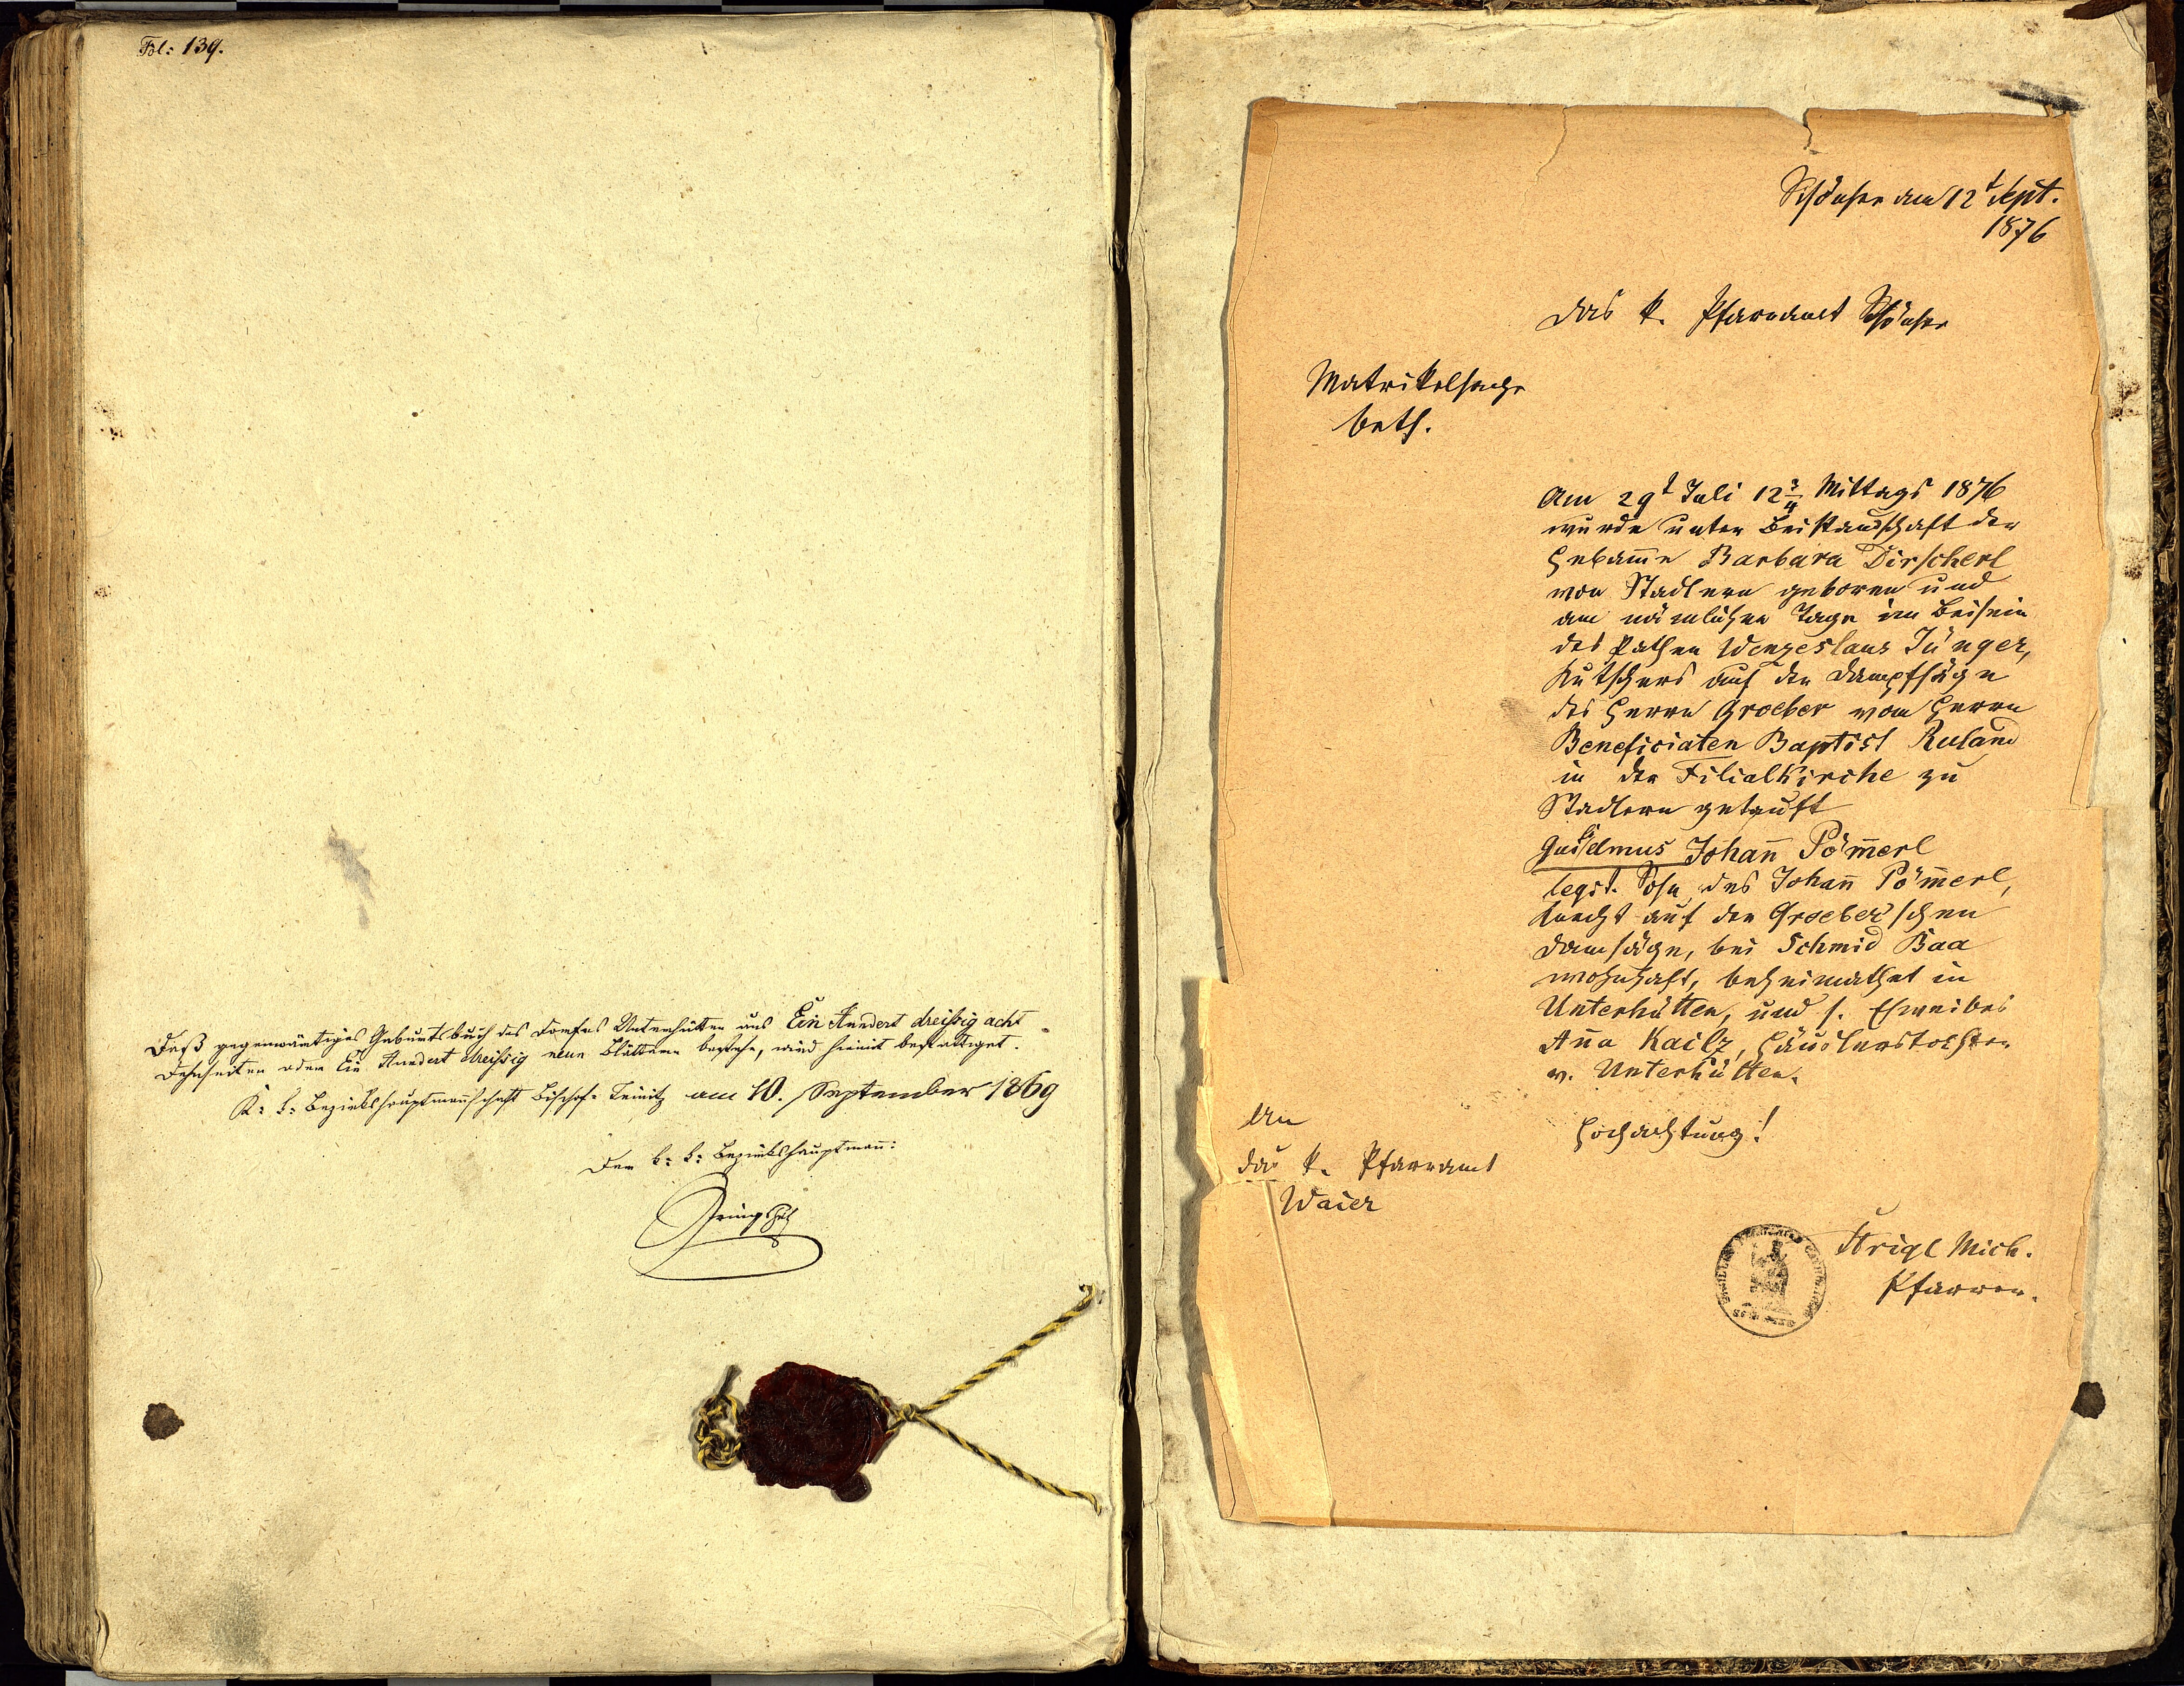 Fol: 139.
Daß gegenwärtiges Geburtsbuch des Dorfes Unterhütten aus Ein Hundert dreißig acht
oder Ein Hundert dreißig neun Blättern bestehe, wird hiemit bestättiget.
K: k: Bezirkshauptmannschaft Bischof-Teinitz am 10. September 1869
Der k: k: Bezirkshauptmañ:
Schönsee am 12t Sept.
1876
Das k. Pfarramt Schönsee
Matrikelsache
betf.
Am 29t Juli 12 3/4 Mittags 1876
wurde unter Beistandschaft der
Hebam̄e Barbara Dirscherl
von Stadlern geboren und
am nämlichen Tage im Beisein
des Pathen Wenzeslaus Jünger,
Kutschers auf der Dampfsäge
des Herrn Groeber vom Herrn
Beneficiaten Baptist Ruland
in der Filialkirche zu
Stadlern getauft
Guilelmus Johañ Pöm̄erl
legit. Sohn des Johañ Pöm̄erl,
Knecht auf der Groeber'schen
Damsäge, bei Schmid Baa
wohnhaft, beheimathet in
Unterhütten, und s. Eheweibes
Aña Kailz, Häuslerstochter
v. Unterhütten.
Hochachtung!
An
das k. Pfarramt
Waier
Strigl Mich.
Pfarrer.